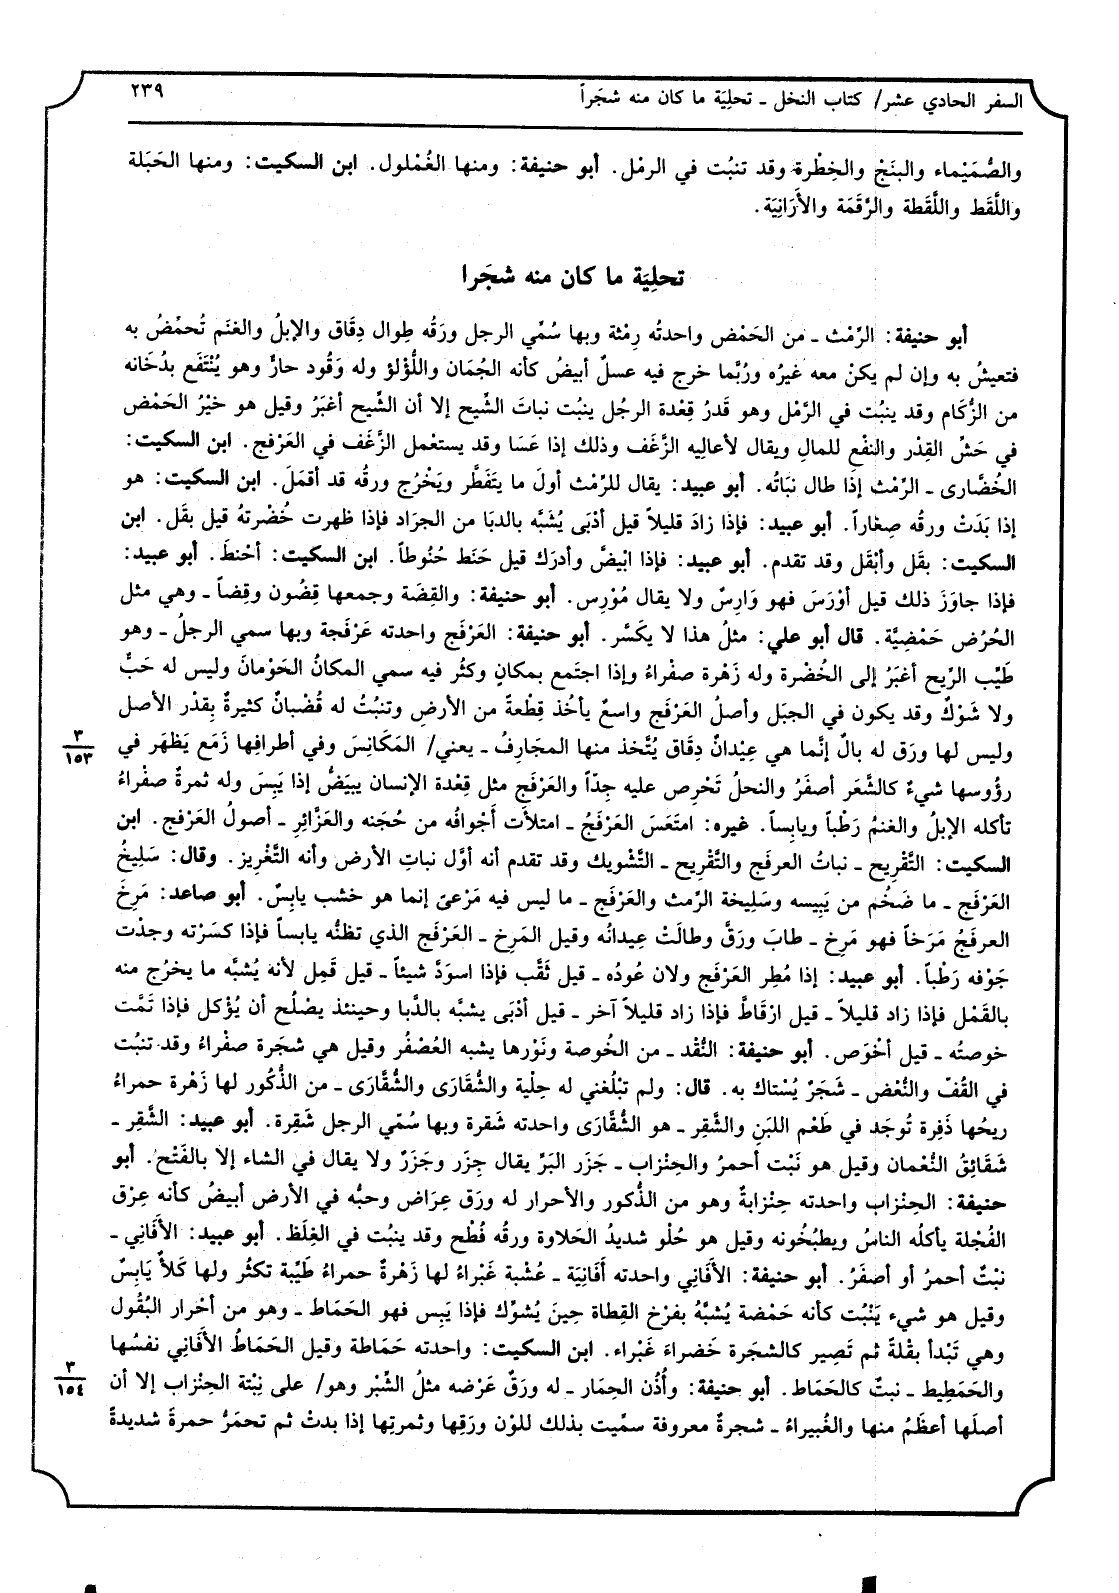 السفر الحادي عشر/ كتاب النخل ـ تحلِيَة ما كان منه شجَراً
٢٣٩
والصُّمَيْماء والبنَجْ والخِطْرة وقد تنبُت في الرمْل. أبو حنيفة: ومنها الغُمْلول. ابن السكيت: ومنها الحَبَلة
واللَّقَط واللَّقَطة والرَّقَمَة والأَرَانِيَة.
تحلِيَة ما كان منه شجَرا
أبو حنيفة: الرِّمْث ـ من الحَمْض واحدتُه رِمْثة وبها سُمِّي الرجل ورَقُه طِوال دِقَاق والإبلُ والغنَم تُحمِّضُ به
فتعيشُ به وإن لم يكنْ معه غيرُه ورُبَّما خرج فيه عسلٌ أبيضُ كأنه الجُمَان واللُّؤلؤ وله وَقُود حارٌّ وهو يُنْتَفَع بدُخَانه
من الزُّكَام وقد ينبُت في الرَّمْل وهو قَدرُ قِعْدة الرجُل ينبُت نباتَ الشِّيح إلا أن الشِّيح أغبَرُ وقيل هو خيْرُ الحَمْض
في حَشِّ القِدْر والنفْع للمالِ ويقال لأعاليِه الزَّغَف وذلك إذا عَسَا وقد يستعْمل الزَّغَف في العَرْفج. ابن السكيت:
الخُضَّارى ـ الرِّمْث إذا طال نبَاتُه. أبو عبيد: يقال للرِّمْث أولَ ما يتَفَطَّر ويَخْرُج ورقُه قد أقمَلَ. ابن السكيت: هو
إذا بَدَتْ ورقُه صِغاراً. أبو عبيد: فإذا زادَ قليلاً قيل أدْبَى يُشبَّه بالدبَا من الجرَاد فإذا ظهرت خُضْرتهُ قيل بقَل. ابن
السكيت: بقَل وأبْقَل وقد تقدم. أبو عبيد: فإذا ابْيضَّ وأدرَك قيل حَنَط حُنُوطاً. ابن السكيت: أحْنطَ. أبو عبيد:
فإذا جاوَزَ ذلك قيل أوْرَسَ فهو وَارِسٌ ولا يقال مُوْرِس. أبو حنيفة: والقِضَة وجمعها قِضُون وقِضاً ـ وهي مثل
الحُرُض حَمْضِيَّة. قال أبو علي: مثلُ هذا لا يكَسَّر. أبو حنيفة: العَرْفَج واحدته عَرْفَجة وبها سمي الرجلُ ـ وهو
طَيِّب الرِّيح أغبَرُ إلى الخُضْرة وله زَهْرة صفْراءُ وإذا اجتَمع بمكانٍ وكثُر فيه سمي المكانُ الحَوْمانَ وليس له حَبٌّ
ولا شَوْكٌ وقد يكون في الجبَل وأصلُ العَرْفَج واسعٌ يأخُذ قِطعةً من الأرضِ وتنبُتُ له قُضْبانٌ كثيرةٌ بِقدْر الأصل
وليس لها ورَق له بالٌ إنَّما هي عِيْدانٌ دِقَاق يُتَّخذ منها المجَارِفُ ـ يعني/ المَكَانِسَ وفي أطرافِها زَمَع يَظهَر في
٣
١٥٣
رؤوسها شيءٌ كالشَّعَر أصفَرُ والنحلُ تَحْرِص عليه جِدّاً والعَرْفَج مثل قِعْدة الإنسان يبيَضُّ إذا يَبِسَ وله ثمرةٌ صفْراءُ
تأكله الإبلُ والغنمُ رَطْباً ويابِساً. غيره: امتَعَسَ العَرْفَجُ ـ امتلأت أجْوافُه من حُجَنه والعَزَّائِرِ ـ أصولُ العَرْفج. ابن
السكيت: التَّقْرِيح ـ نباتُ العرفَج والتَّقْرِيح ـ التَّشْوِيك وقد تقدم أنه أوَّل نباتِ الأرض وأنه التَّغْرِيز. وقال: سَلِيخُ
العَرْفَج ـ ما ضَخُم من يَبِيسه وسَلِيخة الرِّمث والعَرْفَج ـ ما ليس فيه مَرْعىً إنما هو خشب يابِسٌ. أبو صاعد: مَرِخَ
العرفَجُ مَرَخاً فهو مَرِخ ـ طابَ ورَقٌ وطالَتْ عِيدانُه وقيل المَرِخ ـ العَرْفَج الذي تظنُّه يابساً فإذا كسَرْته وجدْت
جَوْفه رَطْباً. أبو عبيد: إذا مُطِر العَرْفَج ولان عُودُه ـ قيل ثَقَّب فإذا اسودَّ شيئاً ـ قيل قَمِل لأنه يُشبَّه ما يخرُج منه
بالقَمْل فإذا زاد قليلاً ـ قيل ارْقَاطَّ فإذا زاد قليلاً آخر ـ قيل أدْبَى يشبَّه بالدَّبا وحينئذ يصْلُح أن يُؤْكل فإذا تَمَّت
خوصتُه ـ قيل أخْوَص. أبو حنيفة: النُّقْد ـ من الخُوصة ونَوْرها يشبه العُصْفُر وقيل هي شجَرة صفْراءُ وقد تنبُت
في القُفّ والنُّعْض ـ شَجَرٌ يُسْتاك به. قال: ولم تبْلُغني له حِلْية والشُّقَارَى والشُّقَّارَى ـ من الذُّكُور لها زَهْرة حمراءُ
ريحُها ذَفِرة تُوجَد في طَعْم اللبَنِ والشَّقِر ـ هو الشُّقَّارَى واحدته شَقرة وبها سُمِّي الرجل شَقِرة. أبو عبيد: الشَّقِر ـ
شَقَائِقُ النُّعْمان وقيل هو نَبْت أحمرُ والحِنْزاب ـ جَزَر البَرِّ يقال جِزَر وجَزَرٌ ولا يقال في الشاء إلا بالفَتْح. أبو
حنيفة: الحِنْزاب واحدته حِنْزابةٌ وهو من الذُّكور والأحرار له ورَق عِرَاض وحبُّه في الأرض أبيضُ كأنه عِرْق
الفُجْلة يأكلُه الناسُ ويطبُخُونه وقيل هو حُلْو شديدُ الحَلاوة ورقُه فُطْح وقد ينبُت في الغِلَظ. أبو عبيد: الأَفَانِي ـ
نبْتٌ أحمرُ أو أصفَرُ. أبو حنيفة: الأَفَانِي واحدته أَفَانِيَة ـ عُشْبة غَبْراءُ لها زَهْرةٌ حمراءُ طَيِّبة تكثُر ولها كَلأٌ يَابِسٌ
وقيل هو شيء يَنْبُت كأنه حَمْضة يُشبَّهُ بفرْخ القِطاة حِينَ يُشوِّك فإذا يَبِس فهو الحَمَاط ـ وهو من أحْرار البُقُول
وهي تَبْدأ بقْلةً ثم تَصِير كالشجَرة خَضراءَ غَبْراء. ابن السكيت: واحدته حَمَاطة وقيل الحَمَاطُ الأفَانِي نفسُها
والحَمَطِيط ـ نبتٌ كالحَمَاط. أبو حنيفة: وأُذُن الحِمَار ـ له ورَقٌ عَرْضه مثلُ الشِّبْر وهو/ على نِبْتة الحِنْزاب إلا أن
٣
١٥٤
أصلَها أعظَمُ منها والغُبيراءُ ـ شجرةٌ معروفة سمِّيت بذلك للَوْن ورَقِها وثمرتِها إذا بدتْ ثم تحمَرُّ حمرةً شديدةً